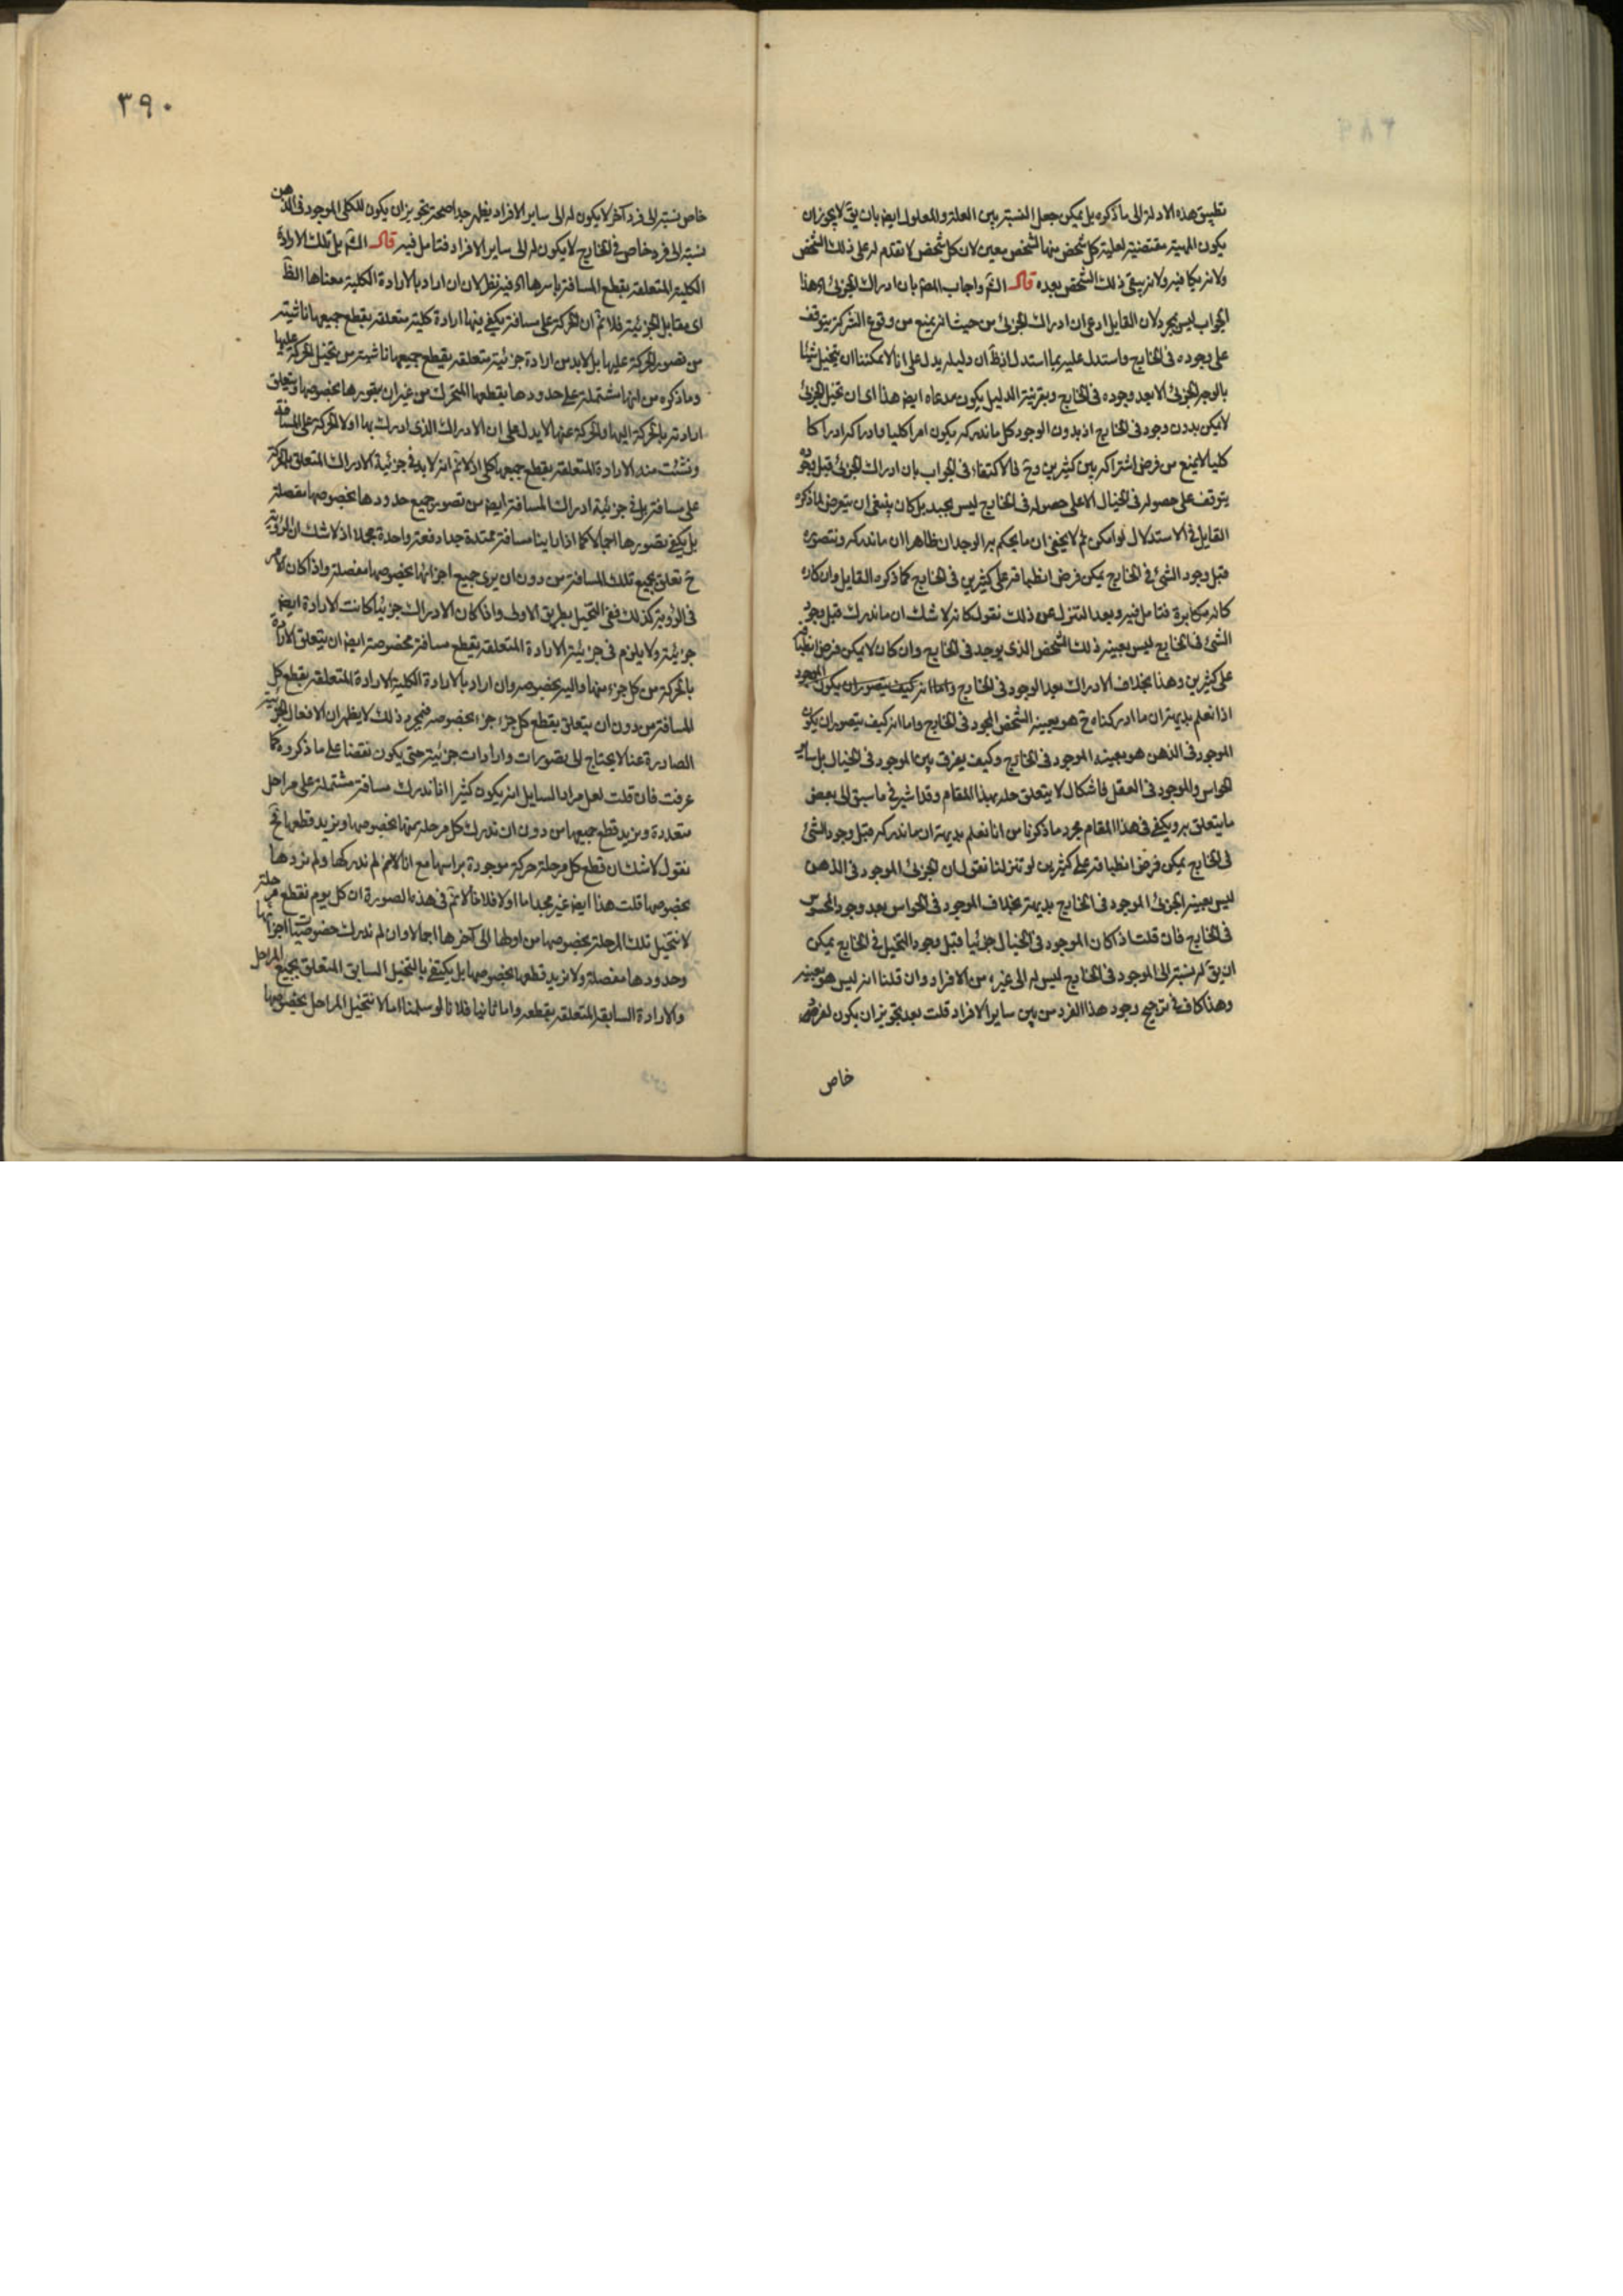 تطبيق هذه الادلة الى ما ذكره بل يمكن جعل النسبة بين العلة والمعلول ايض بان يق لا يجوز ان
يكون المهية مقتضية لعلية كل شخص منها لشخص معين لان كل شخص لا تقدم له على ذلك الشخص
ولا تر فيه ولانه يبقى ذلك الشخص بعده قال الشم واجاب المص بان ادراك الجزئى اه هذا
الجواب ليس بجيد لان القايل ادعى ان ادراك الجزئى من حيث انه يمنع من وقوع الشركة يتوقف
على وجوده فى الخارج واستدل عليه بما استدل ان دليله يدل على انا لا يمكننا ان يتخيل شيئا
بالوجه الجزئى الا بعد وجوده فى الخارج وبقرينة الدليل يكون مدعاه ايض هذا اى ان تخيل الجزئى
لا يمكن بدون وجود فى الخارج اذ بدون الوجود كل ما ندركه يكون امرا كليا وادراكه ادراكا
كليا لا يمنع من فرض اشتراكه بين كثيرين وح فالاكتفاء فى الجواب بان ادراك الجزئى قبل وجوده
يتوقف على حصوله فى الخيال لا على حصوله فى الخارج ليس بجيد بل كان ينبغى ان يتعرض لما ذكره
القايل فى الاستدلال لو امكن ثم لا يخفى ان ما يحكم به الوجدان ظاهرا ان ما ندركه ونتصوره
قبل وجود الشئ فى الخارج يمكن فرض انطباقه على كثيرين فى الخارج كما ذكره القايل وانكاره
كانه مكابرة فتامل فيه وبعد التنزل عن ذلك نقول كانه لا شك ان ما ندرك قبل وجود
الشئ فى الخارج ليس بعينه ذلك الشخص الذى يوجد فى الخارج وان كان لا يمكن فرض انطباقه
على كثيرين وهذا بخلاف الادراك بعد الوجود فى الخارج واما انه كيف يتصور ان يكون الموجود
اذا نعلم بديهة ان ما ادركناه ح هو بعينه الشخص الموجود فى الخارج واما انه كيف يتصور ان يكون
الموجود فى الذهن هو بعينه الموجود فى الخارج وكيف يفرق بين الموجود فى الخيال بل ساير
الحواس والموجود فى العقل فاشكال لا يتعلق حله بهذا المقام وقد اشير فى ما سبق الى بعض
ما يتعلق به ويكفى فى هذا المقام مجرد ما ذكرنا من انا نعلم بديهة ان ما ندركه قبل وجود الشئ
فى الخارج يمكن فرض انطباقه على كثيرين لو تنزلنا نقول ان الجزئى الموجود فى الذهن
ليس بعينه الجزئى الموجود فى الخارج بديهة بخلاف الموجود فى الحواس بعد وجود المحسوس
فى الخارج فان قلت اذا كان الموجود فى الخيال جزئيا قبل وجود المتخيل فى الخارج يمكن
ان يق له نسبة الى الموجود فى الخارج ليس له الى غيره من الافراد وان قلنا انه ليس هو بعينه
وهذا كاف فى ترجيح وجود هذا الفرد من بين ساير الافراد قلت بعد تجويز ان يكون لفرض
خاص
٣٩٠
خاص نسبة الى فرد آخر لا يكون له الى ساير الافراد يظهر جدا صحة تجويز ان يكون للكلى الموجود فى الذهن
نسبة الى فرد خاص فى الخارج لا يكون له الى ساير الافراد فتامل فيه قال الشم بل تلك الارادة
الكلية المتعلقة بقطع المسافة باسرها اه فيه نظر لان ان اراد بالارادة الكلية معناها الظ
اى مقابل الجزئية فلا تم ان الحركة على مسافة يكفى فيها ارادة كلية متعلقة بقطع جميعها ناشية
من تصور الحركة عليها بل لا بد من ارادة جزئية متعلقة بقطع جميعها ناشية من تخيل الحركة عليها
وما ذكره من انها مشتملة على حدودها يقطعها المتحرك من غير ان يتصورها بخصوصها ويتعلق
ارادته بالحركة اليها والحركة عنها لا يدل على ان الادراك الذى ادرك بها اولا الحركة على المسافة
ونشئت منه الارادة المتعلقة بقطع جميعها كلى اذ لا تم انه لا بد فى جزئية الادراك المتعلق بالحركة
على مسافة بل فى جزئية ادراك المسافة ايض من تصور جميع حدودها بخصوصها مفصلة
بل يكفى تصورها اجمالا كما اذا راينا مسافة ممتدة جدا دفعة واحدة مجملا اذ لا شك ان الرؤية
ح تعلق بجميع تلك المسافة من دون ان يرى جميع اجزائها بخصوصها مفصلة واذا كان الامر
فى الرؤية كذلك ففى التخيل بطريق الاولى واذا كان الادراك جزئيا كانت الارادة ايض
جزئية ولا يلزم فى جزئية الارادة المتعلقة بقطع مسافة مخصوصة ايض ان يتعلق الارادة
بالحركة من كل جزء منها واليه بخصوصه وان اراد بالارادة الكلية الارادة المتعلقة بقطع كل
المسافة من دون ان يتعلق بقطع كل جزء جزء بخصوصه فبمجرد ذلك لا يظهر ان الافعال الجزئية
الصادرة عنا لا يحتاج الى تصورات وارادات جزئية حتى يكون نقضا على ما ذكروه كما
عرفت فان قلت لعل مراد السايل انه يكون كثيرا انا ندرك مسافة مشتملة على مراحل
متعددة ونريد قطع جميعها من دون ان ندرك كل مرحلة منها بخصوصها ونريد قطعها فح
نقول لا شك ان قطع كل مرحلة حركة موجودة براسها مع انا لانم لم ندركها ولم نردها
بخصوصها قلت هذا ايض غير مجد اما اولا فلانا لا تم فى هذه الصورة ان كل يوم نقطع مرحلة
لا نتخيل تلك المرحلة بخصوصها من اولها الى آخرها اجمالا وان لم ندرك خصوصيات اجزائها
وحدودها مفصلة ولا نريد قطعها بخصوصها بل يكتفى بالتخيل السابق المتعلق بجميع المراحل
والارادة السابقة المتعلقة بقطعه واما ثانيا فلانا لو سلمنا انا لا نتخيل المراحل بخصوصها